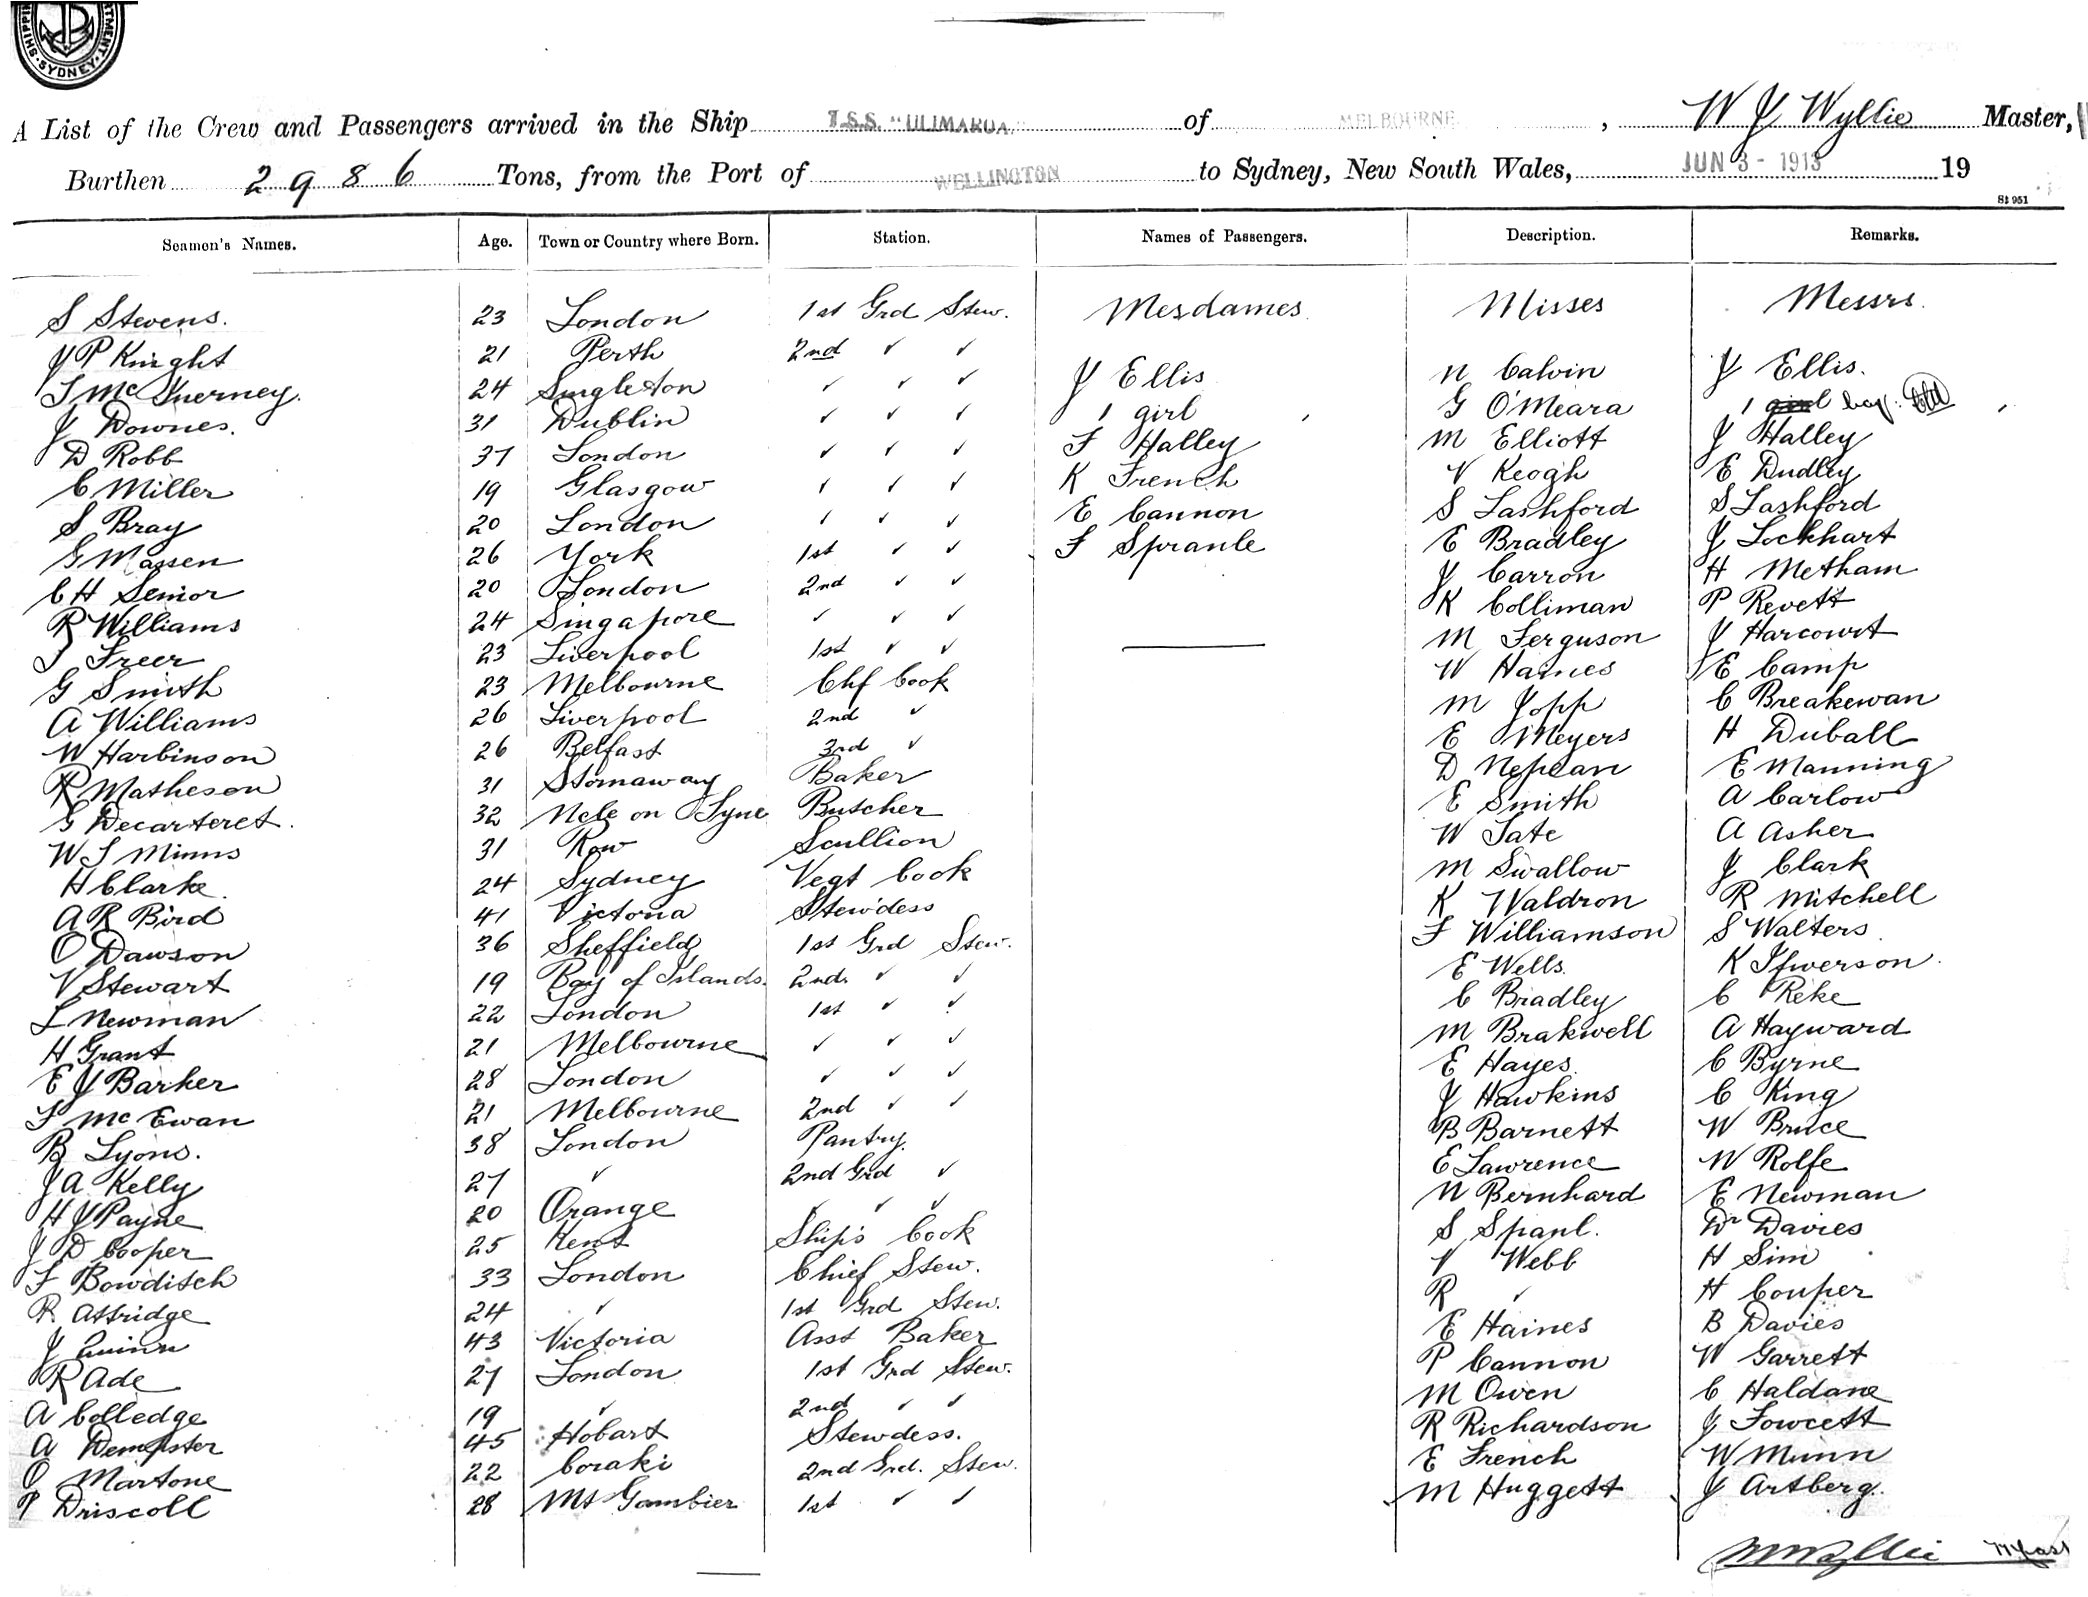 SHIPPING DEPARTMENT SYDNEY
A List of the Crew and Passengers arrived in the Ship T.S.S. "ULIMAROA." of MELBOURNE, W J Wyllie Master,
Burthen 2986 Tons, from the Port of WELLINGTON to Sydney, New South Wales, JUN 3 - 1913 19
St 951
Seamen's Names. Age. Town or Country where Born. Station. Names of Passengers. Description. Remarks.
S Stevens. 23 London 1st Grd Stew. Mesdames Misses Messrs.
J P Knight 21 Perth 2nd ✓ ✓ J Ellis N Calvin J Ellis.
T McInerney. 24 Singleton ✓ ✓ ✓ 1 girl G O'Meara 1 girl boy.
J Downes. 31 Dublin ✓ ✓ ✓ F Halley M Elliott J Halley
D Robb 37 London ✓ ✓ ✓ K French V Keogh E Dudley
C Miller 19 Glasgow ✓ ✓ ✓ E Cannon S Lashford S Lashford
S Bray 20 London ✓ ✓ ✓ F Sprante E Bradley J Lockhart
G Massen 26 York 1st ✓ ✓ J Carron H Metham
C H Senior 20 London 2nd ✓ ✓ K Colliman P Revett
R Williams 24 Singapore ✓ ✓ ✓ M Ferguson J Harcourt
J Freer 23 Liverpool 1st ✓ ✓ W Haines E Camp
G Smith 23 Melbourne Chf Cook M Jopp C Breakewan
A Williams 26 Liverpool 2nd ✓ E Meyers H Duball
W Harbinson 26 Belfast 3rd ✓ D Nepean E Manning
R Matheson 31 Stornaway Baker E Smith A Carlow
G Decarteret. 32 Ncle on Tyne Butcher W Tate A Asher
W T Minns 31 Row Scullion M Swallow J Clark
H Clarke. 24 Sydney Vegt Cook K Waldron R Mitchell
A R Bird 41 Victoria Stew'dess F Williamson S Walters
O Dawson 36 Sheffield 1st Grd Stew. E Wells. K Ifwerson
V Stewart 19 Bay of Islands. 2nd. ✓ ✓ C Bradley C Reke
L Newman 22 London 1st ✓ ✓ M Brakwell A Hayward
H Grant 21 Melbourne ✓ ✓ ✓ E Hayes. C Byrne
E J Barker 28 London ✓ ✓ ✓ J Hawkins C King
T McEwan 21 Melbourne 2nd ✓ ✓ B Barnett W Bruce
B Lyons. 38 London Pantry. E Lawrence W Rolfe
J A Kelly 27 ✓ 2nd Grd ✓ N Bernhard E Newman
H J Payne 20 Orange ✓ ✓ ✓ S Spanl. Dr Davies
J D Cooper 25 Kent Ship's Cook V Webb H Sim
F Bowditch 33 London Chief Stew. R ✓ H Couper
R Attridge 24 ✓ 1st Grd Stew. E Haines B Davies
J Quinn 43 Victoria Asst Baker P Cannon W Garrett
R Ade 27 London 1st Grd Stew. M Owen C Haldane
A Colledge 19 ✓ 2nd ✓ ✓ R Richardson J Fowcett
A Dempster 45 Hobart Stewdess. E French W Munn
O Martone 22 Coraki 2nd Grd. Stew. M Huggett J Artberg.
P Driscoll 28 Mt Gambier 1st ✓ ✓
W J Wyllie Mast